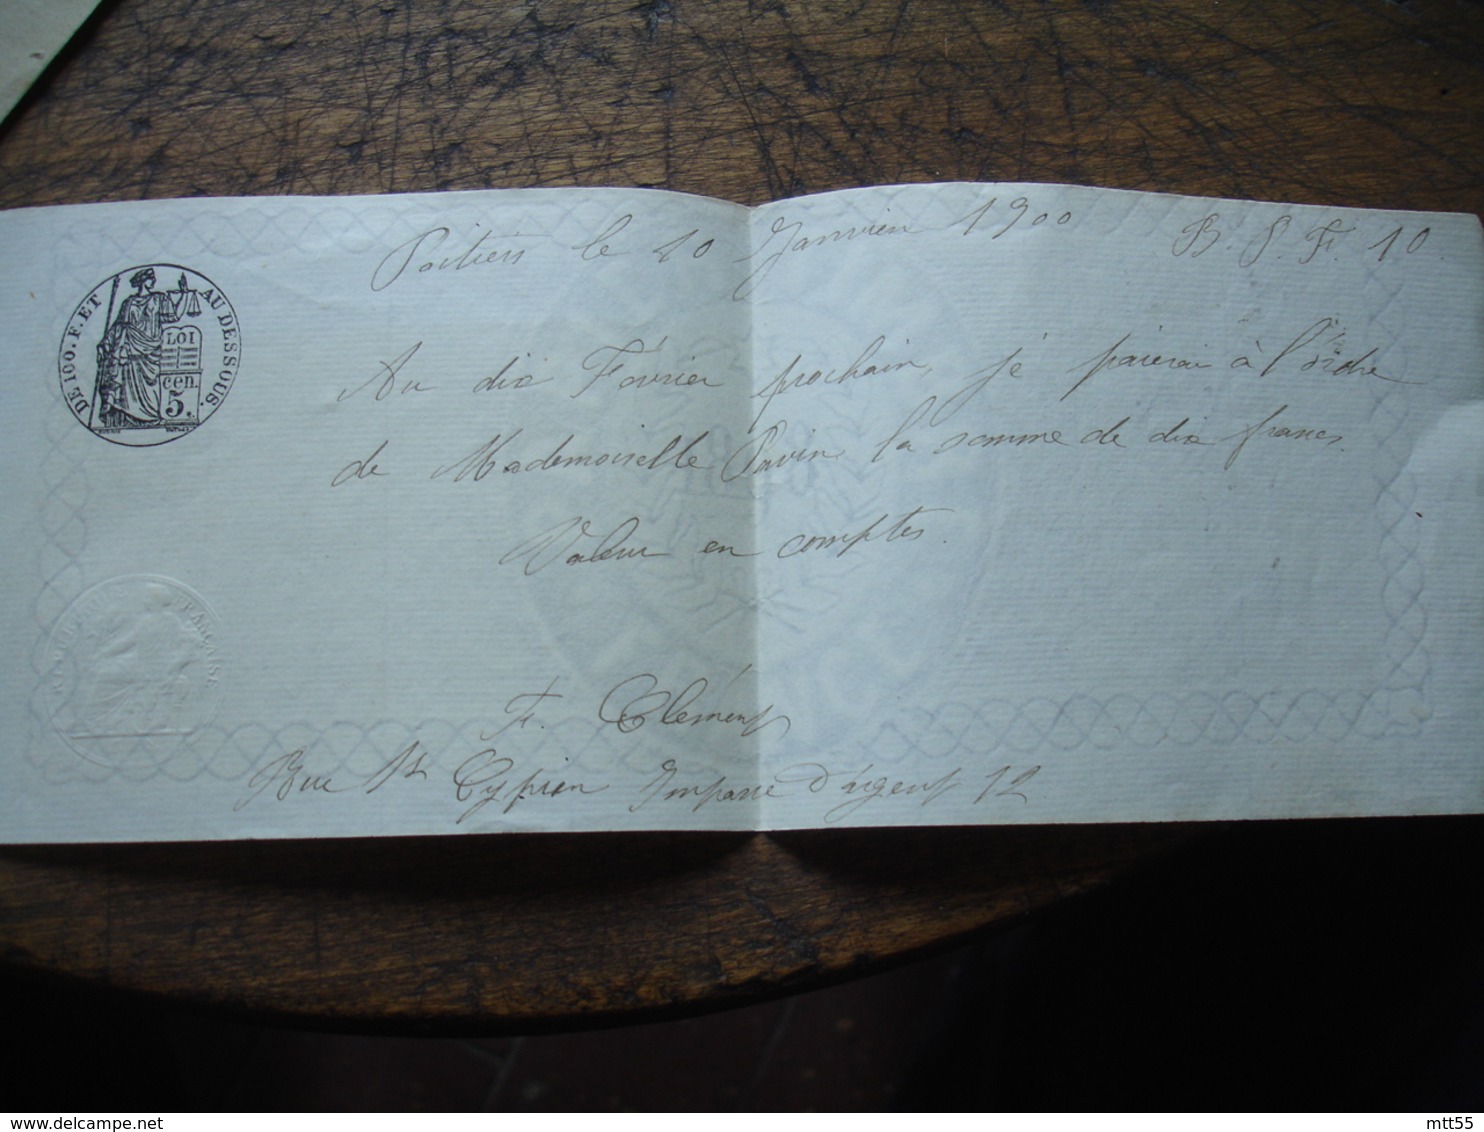 Poitiers le 10 Janvier 1900 B. P. F. 10
DE 100. F. ET AU DESSOUS.
LOI
cen.
5.
Au dix Février prochain, je paierai à l'ordre
de Mademoiselle Pavin la somme de dix francs
Valeur en comptes.
RÉPUBLIQUE FRANÇAISE
F. Clément
Rue St Cyprien Impasse d'argent 12
delcampe.net
mtt55